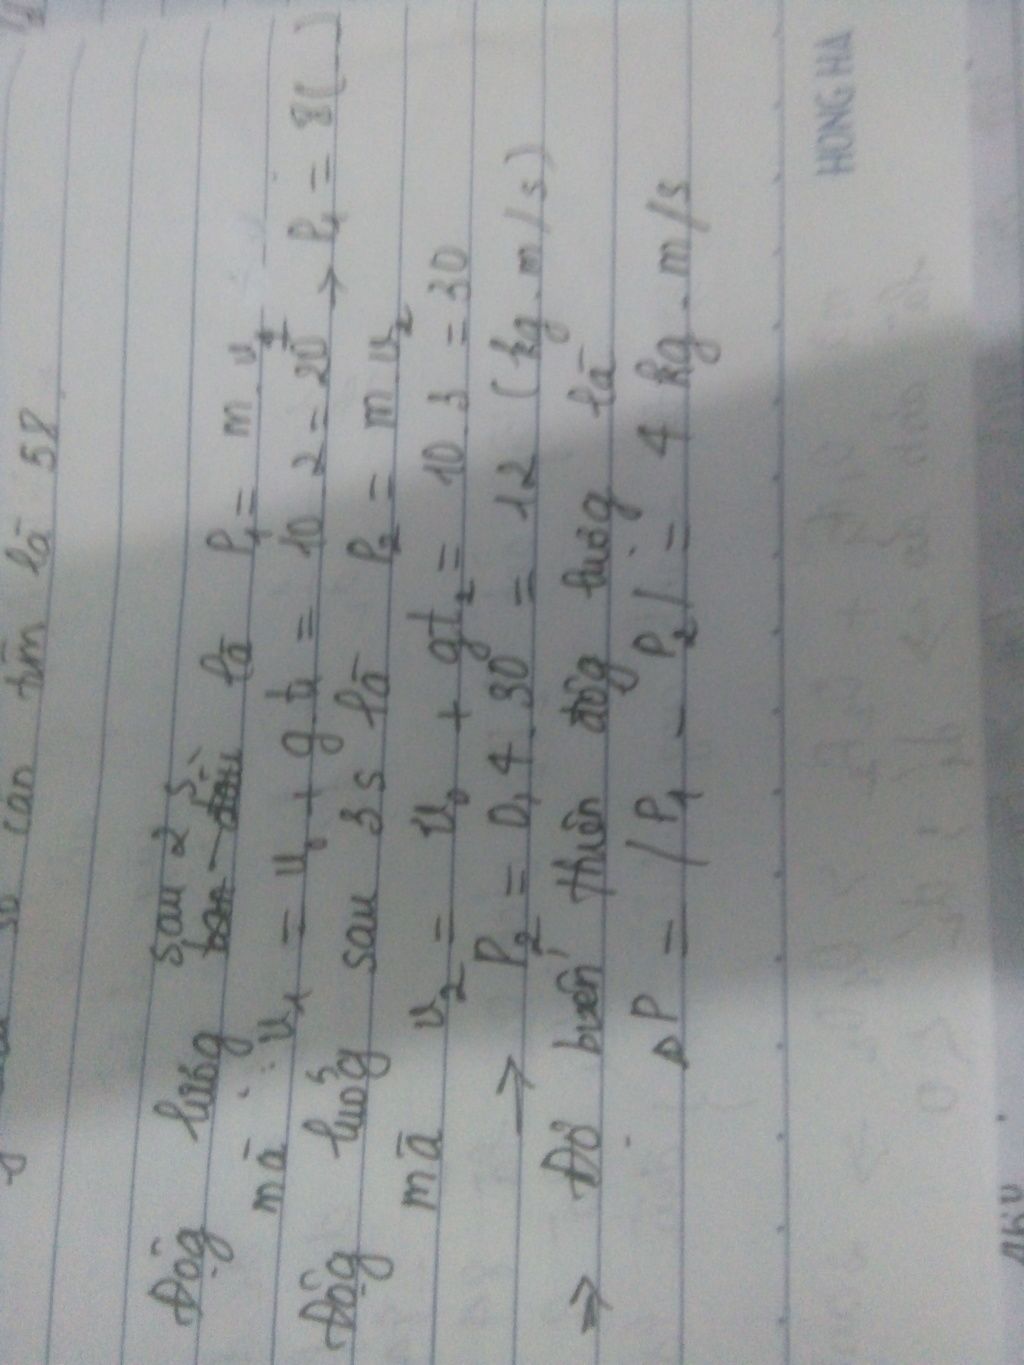 cần tìm là 58
Động lượng sau 2s là P₁ = m.v₁
mà: v₁ = v₀ + g.t₁ = 10.2 = 20 → P₁ = 8(
Động lượng sau 3s là P₂ = m.v₂
mà v₂ = v₀ + gt₂ = 10.3 = 30
→ P₂ = 0,4.30 = 12 (kg.m/s)
⇒ Độ biến thiên động lượng là
ΔP = |P₁ - P₂| = 4 kg.m/s
HONG HA